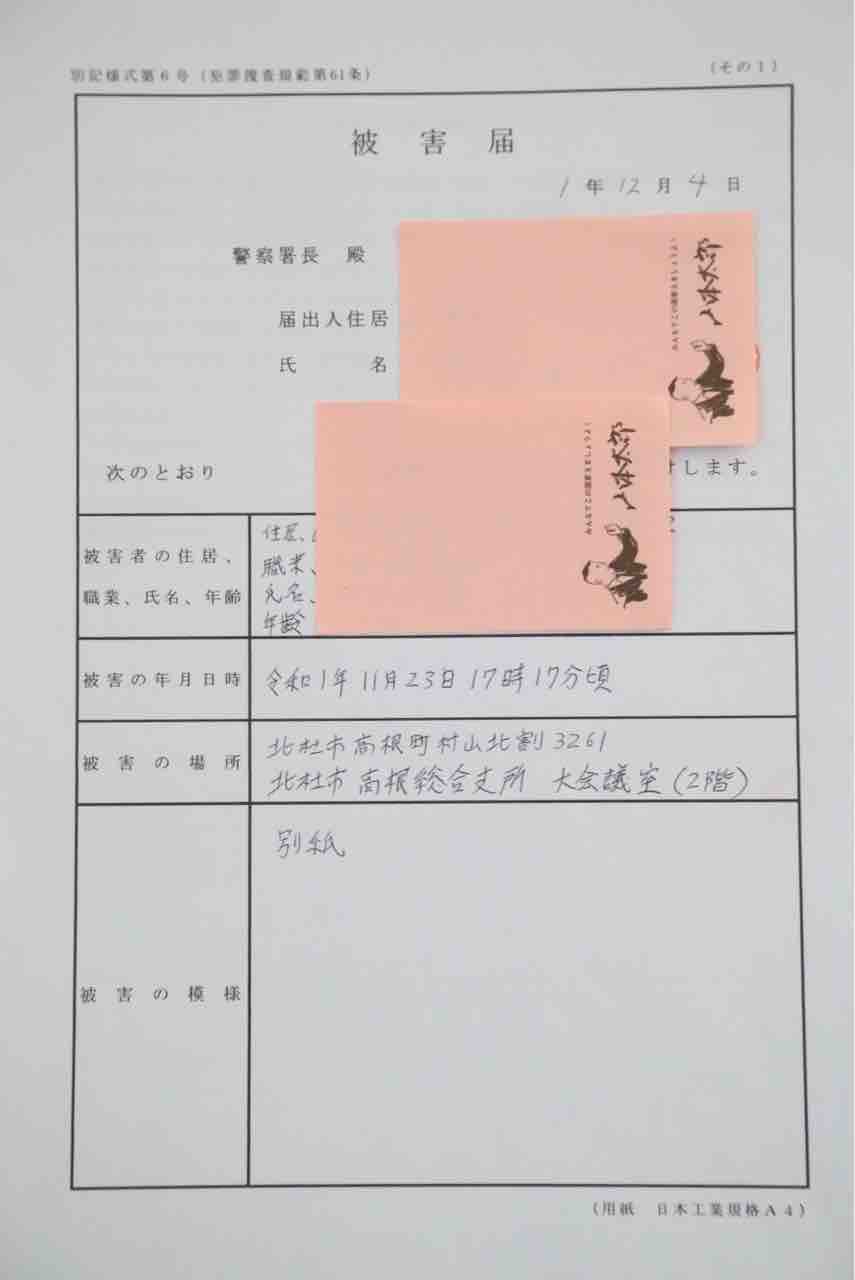 別記様式第6号(犯罪捜査規範第61条)
(その1)
被害届
1年12月4日
警察署長 殿
届出人住居
氏 名
次のとおり
します。
被害者の住居、
職業、氏名、年齢
住居、
職業、
氏名、
年齢
被害の年月日時
令和1年11月23日17時17分頃
被害の場所
北杜市高根町村山北割3261
北杜市 高根総合支所 大会議室(2階)
被害の模様
別紙
(用紙 日本工業規格A4)